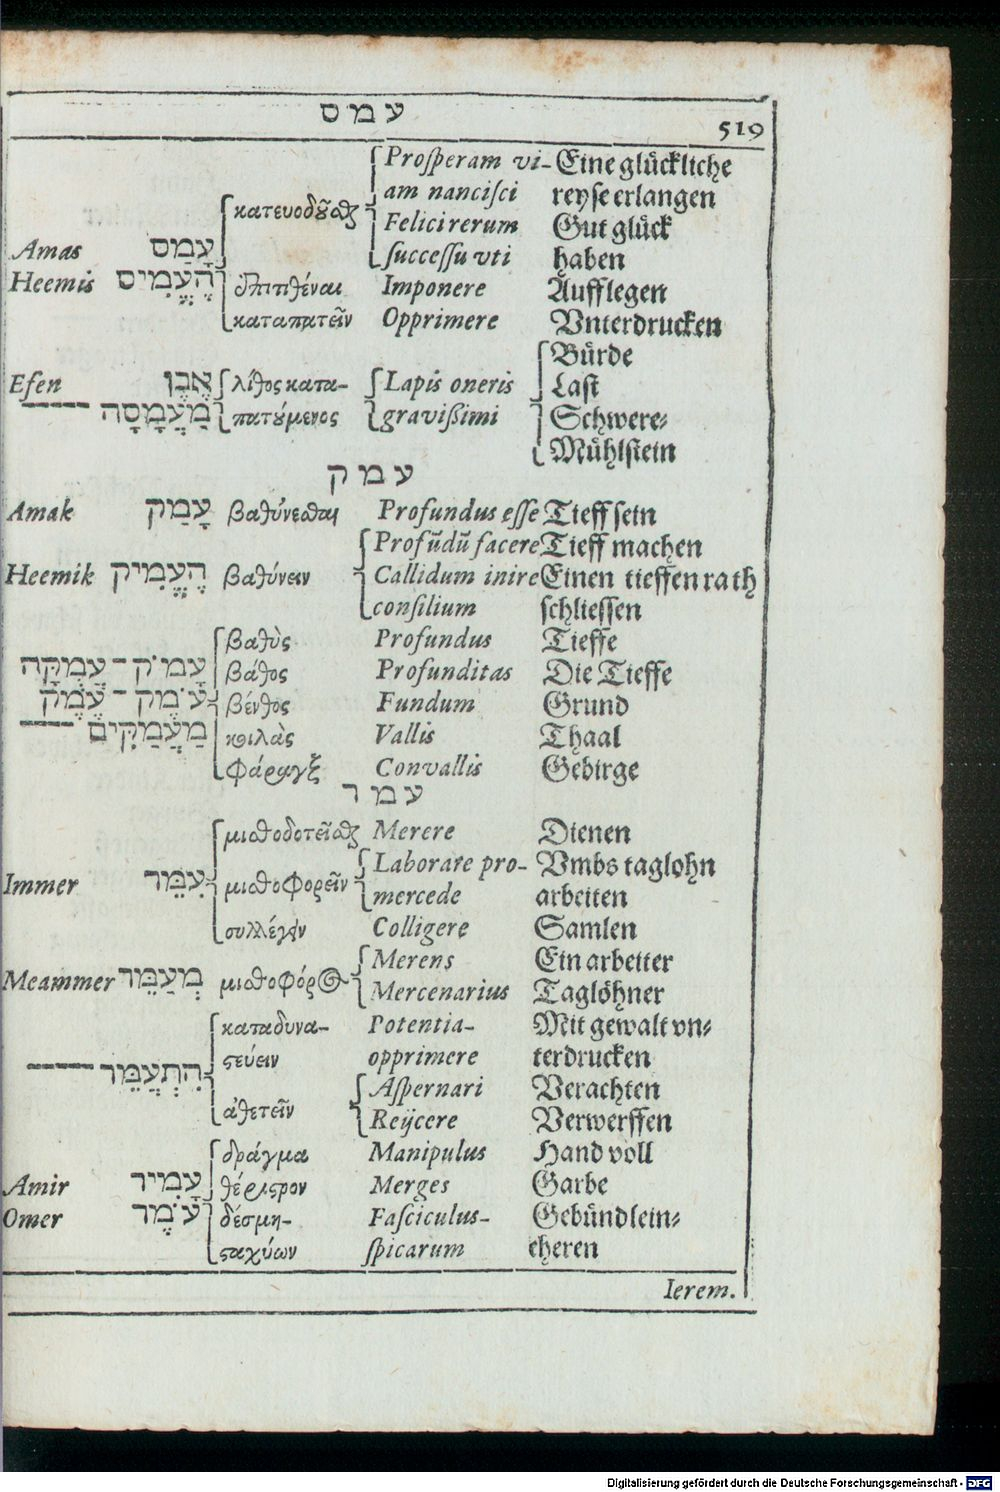 עמס
519
κατευοδȣ͂σθαι Prosperam vi- Eine glückliche
am nancisci reyse erlangen
Felicirerum Gut glück
Amas עָמַס successu vti haben
Heemis הֶעֱמִיס ἐπιτιθέναι Imponere Aufflegen
καταπατεῖν Opprimere Vnterdrucken
Bürde
Efen אֶבֶן λίθος κατα- Lapis oneris Last
מַעֲמָסָה πατȣ́μενος gravißimi Schwere-
Mühlstein
עמק
Amak עָמַק βαθύνεσθαι Profundus esse Tieff sein
Profũdũ facere Tieff machen
Heemik הֶעֱמִיק βαθύνειν Callidum inire Einen tieffen rath
consilium schliessen
βαθὺς Profundus Tieffe
עָמֹק - עֲמֻקָּה βάθος Profunditas Die Tieffe
עֹמֶק - עֵמֶק βένθος Fundum Grund
מַעֲמַקִּים κοιλὰς Vallis Thaal
φάραγξ Convallis Gebirge
עמר
μισθοδοτεῖσθαι Merere Dienen
Laborare pro- Vmbs taglohn
Immer עִמֵּר μισθοφορεῖν mercede arbeiten
συλλέγειν Colligere Samlen
Merens Ein arbeiter
Meammer מְעַמֵּר μισθοφόρος Mercenarius Taglöhner
καταδυνα- Potentia- Mit gewalt vn-
ςεύειν opprimere terdrucken
הִתְעַמֵּר Aspernari Verachten
ἀθετεῖν Reijcere Verwerffen
δράγμα Manipulus Hand voll
Amir עָמִיר θέριςρον Merges Garbe
Omer עֹמֶר δέσμη- Fasciculus- Gebündlein-
ςαχύων spicarum eheren
Ierem.
Digitalisierung gefördert durch die Deutsche Forschungsgemeinschaft - DFG